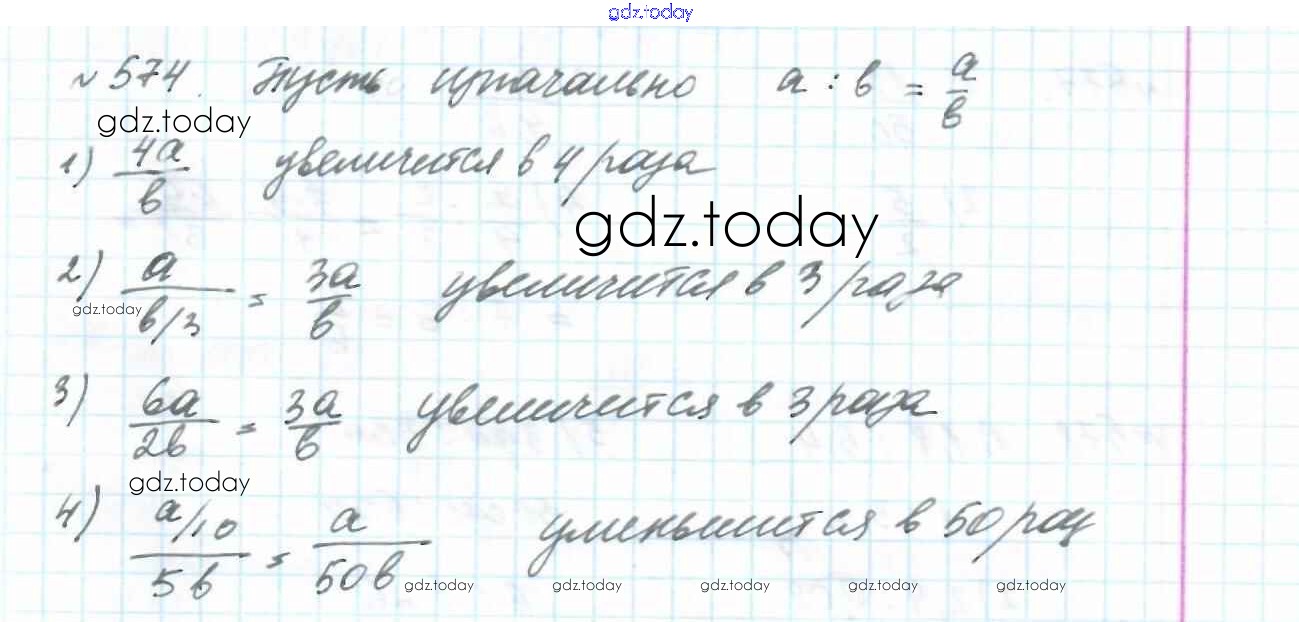 gdz.today
№574. Пусть изначально a : b = a/b
gdz.today
1) 4a/b увеличится в 4 раза
gdz.today
2) a/(b/3) = 3a/b увеличится в 3 раза
gdz.today
3) 6a/2b = 3a/b увеличится в 3 раза
gdz.today
4) (a/10)/5b = a/50b уменьшится в 50 раз
gdz.today gdz.today gdz.today gdz.today gdz.today